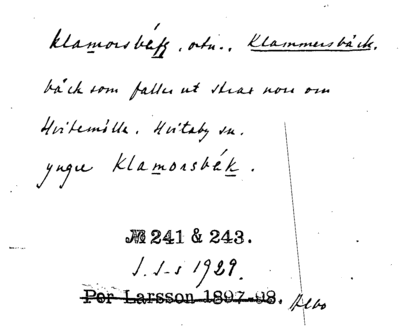 klamorsbäkk, ortn., Klammersbäck.
bäck som faller ut strax norr om
Hvitemölla. Hvitaby sn.
yngre Klamorsbäk.
№ 241 & 243.
I. I-s 1929.
Per Larsson 1897-98.